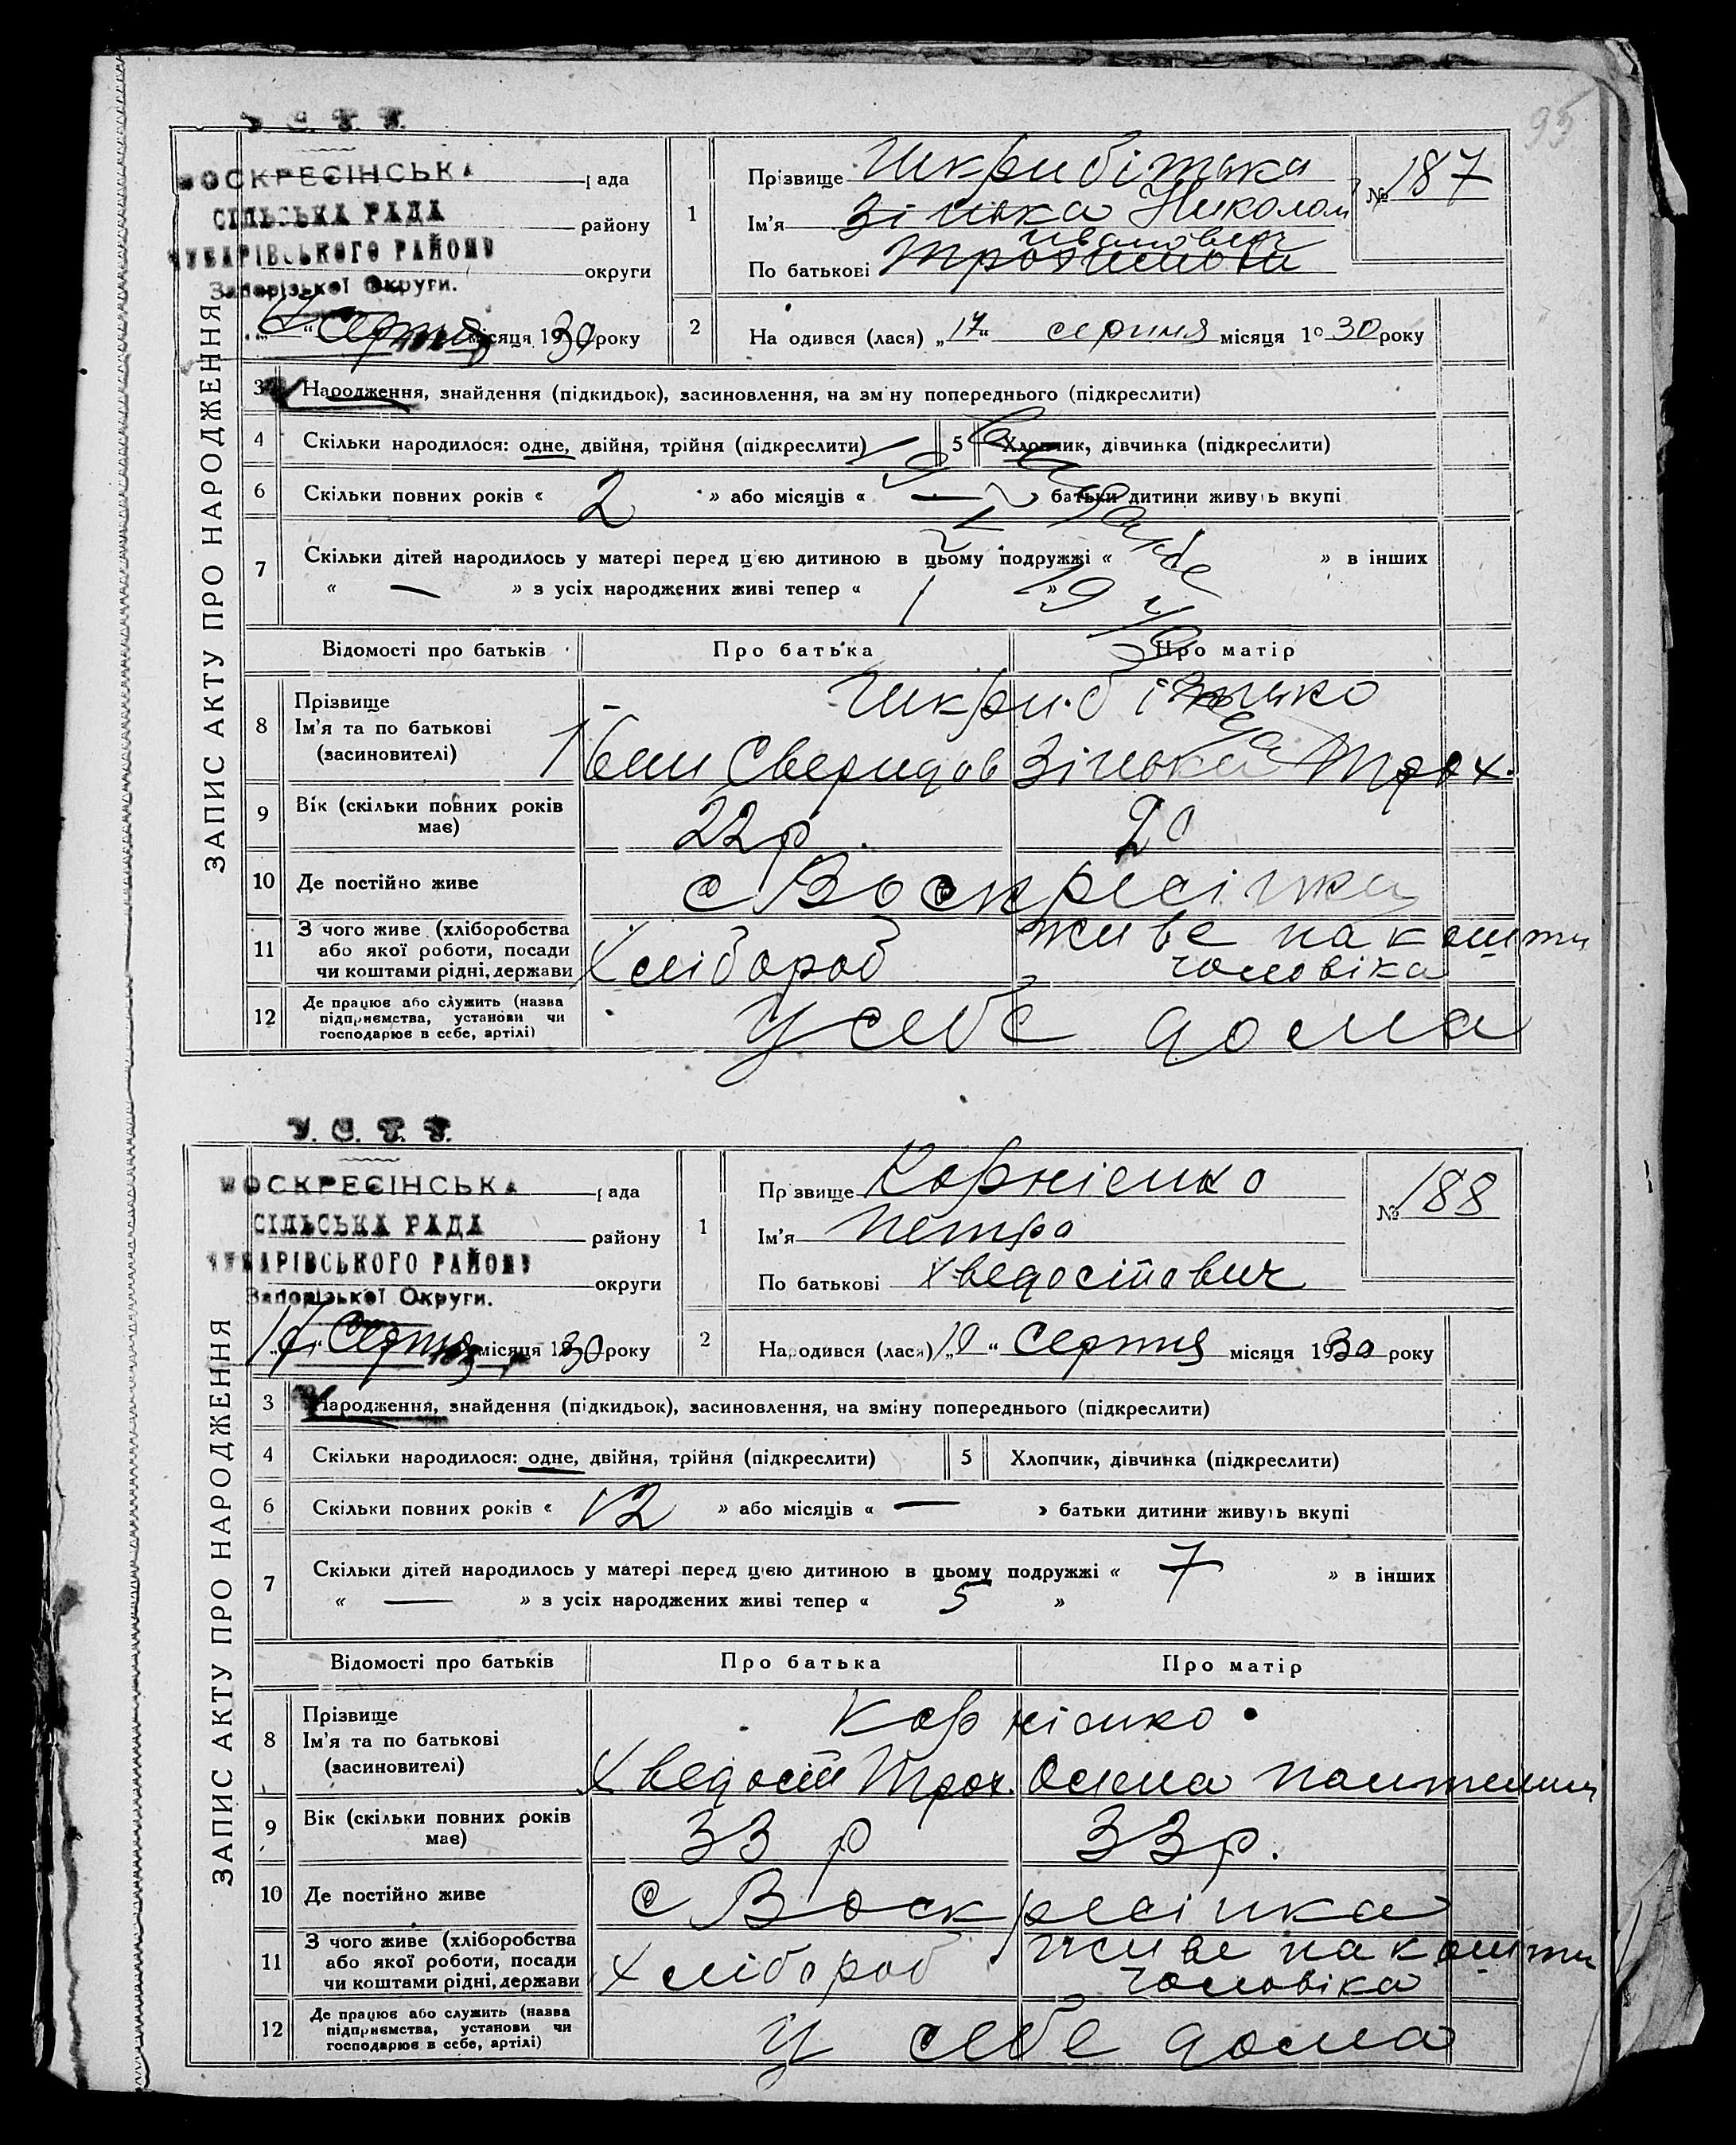 95
У. С. Р. Р.
ВОСКРЕСІНСЬКА рада
СІЛЬСЬКА РАДА району
ЧУБАРІВСЬКОГО РАЙОНУ округи
Запорізької Округи.
Серпня місяця 1930 року
ЗАПИС АКТУ ПРО НАРОДЖЕННЯ
1 Прізвище Шкрибітька
№ 187
Ім'я Зінька Николай
Иванович
По батькові Трохимова
2 Народився (лася) „17“ серпня місяця 1930 року
3 Народження, знайдення (підкидьок), засиновлення, на зміну попереднього (підкреслити)
4 Скільки народилося: одне, двійня, трійня (підкреслити) 5 Хлопчик, дівчинка (підкреслити)
6 Скільки повних років « 2 » або місяців « — » батьки дитини живуть вкупі
7 Скільки дітей народилось у матері перед цією дитиною в цьому подружжі « » в інших
« — » з усіх народжених живі тепер « 1 »
Відомості про батьків Про батька Про матір
8 Прізвище Ім'я та по батькові (засновителі) Шкрибітько
Іван Сверидов Зінька Трох.
9 Вік (скільки повних років має) 22 р. 20
10 Де постійно живе с Воскресінка
11 З чого живе (хліборобства або якої роботи, посади чи коштами рідні, держави Хлібороб живе на кошти чоловіка
12 Де працює або служить (назва підприємства, установи чи господарює в себе, артілі) У себе дома
У. С. Р. Р.
ВОСКРЕСІНСЬКА рада
СІЛЬСЬКА РАДА району
ЧУБАРІВСЬКОГО РАЙОНУ округи
Запорізької Округи.
Серпня місяця 1930 року
ЗАПИС АКТУ ПРО НАРОДЖЕННЯ
1 Прізвище Корнієнко
№ 188
Ім'я Петро
По батькові Хведосійович
2 Народився (лася) „10“ Серпня місяця 1930 року
3 Народження, знайдення (підкидьок), засиновлення, на зміну попереднього (підкреслити)
4 Скільки народилося: одне, двійня, трійня (підкреслити) 5 Хлопчик, дівчинка (підкреслити)
6 Скільки повних років « 12 » або місяців « — » батьки дитини живуть вкупі
7 Скільки дітей народилось у матері перед цією дитиною в цьому подружжі « 7 » в інших
« — » з усіх народжених живі тепер « 5 »
Відомості про батьків Про батька Про матір
8 Прізвище Ім'я та по батькові (засиновителі) Корнієнко
Хведосій Трох. Олена
9 Вік (скільки повних років має) 33 р 33 р.
10 Де постійно живе с Воскресінка
11 З чого живе (хліборобства або якої роботи, посади чи коштами рідні, держави хлібороб живе на кошти чоловіка
12 Де працює або служить (назва підприємства, установи чи господарює в себе, артілі) У себе дома